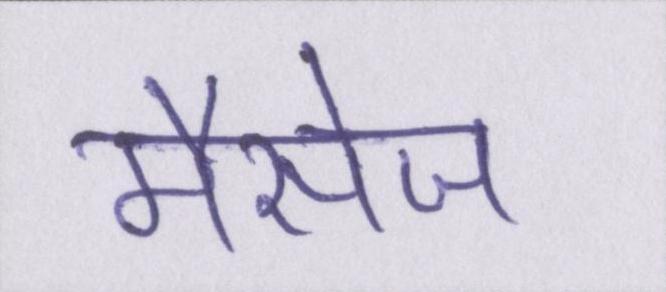 मैसेज